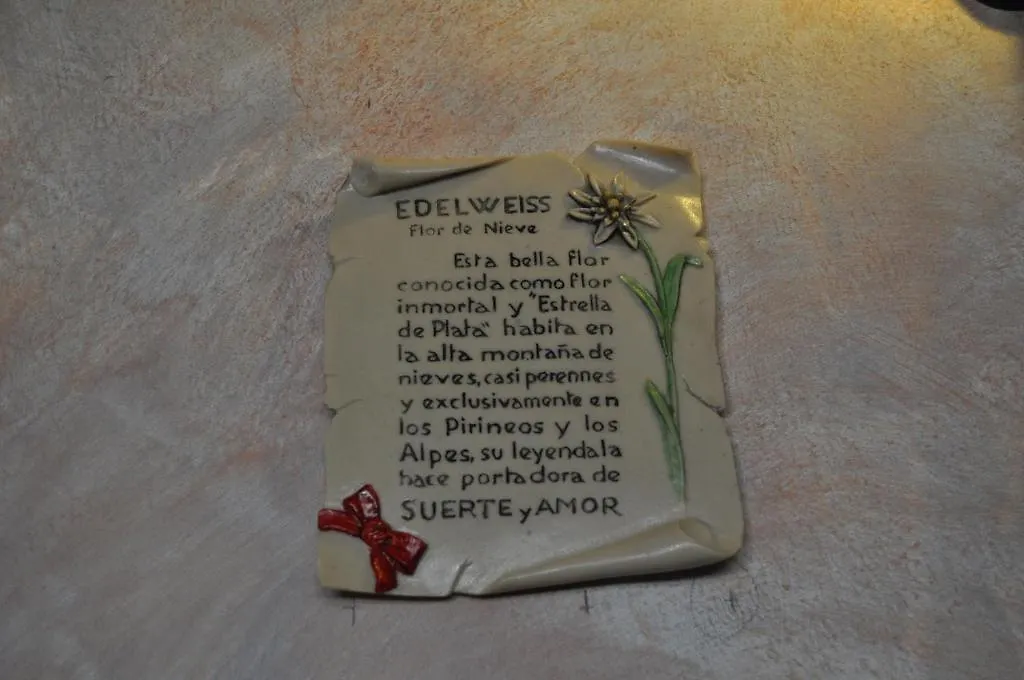 EDELWEISS
Flor de Nieve
Esta bella flor
conocida como flor
inmortal y "Estrella
de Plata" habita en
la alta montaña de
nieves, casi perennes
y exclusivamente en
los Pirineos y los
Alpes, su leyenda la
hace portadora de
SUERTE y AMOR